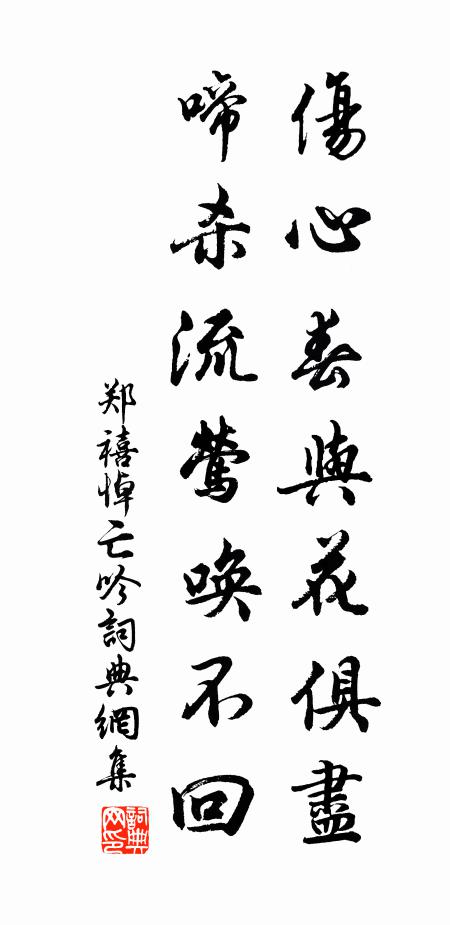 傷心春與花俱盡
啼杀流鶯唤不回
郑禧悼亡吟詞典網集
詞典網印